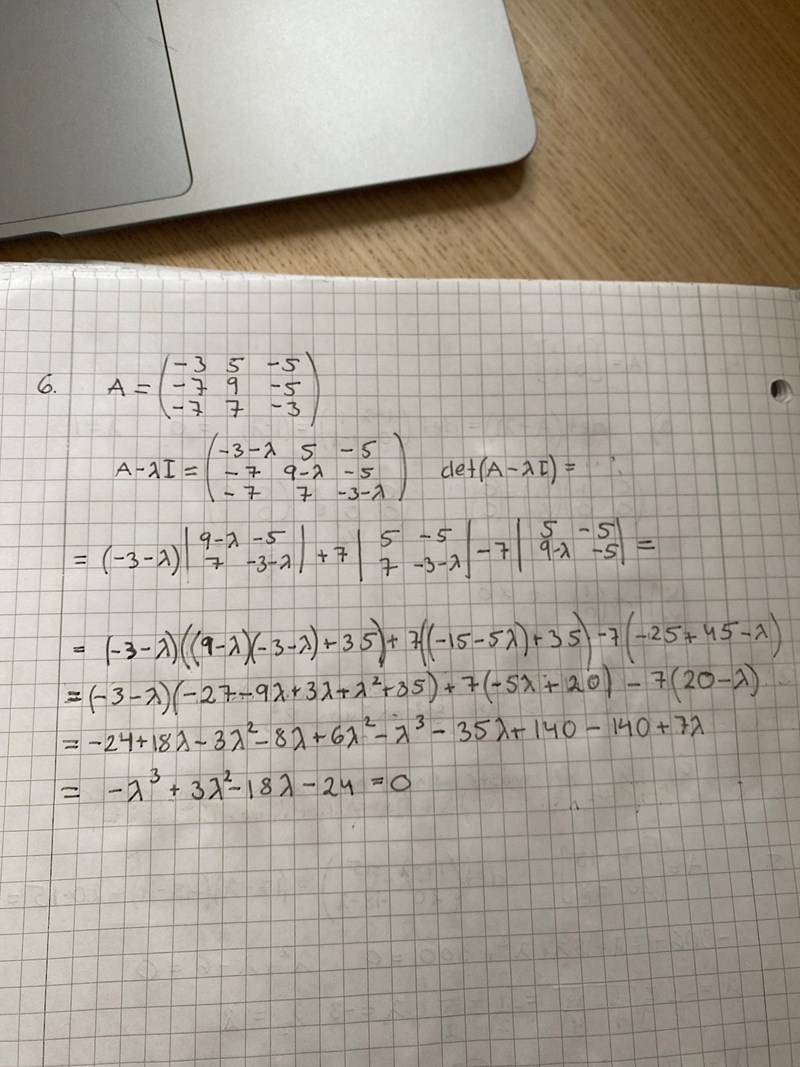 6. A = (-3 5 -5
-7 9 -5
-7 7 -3)
A-λI = (-3-λ 5 -5
-7 9-λ -5
-7 7 -3-λ) det(A-λI) =
= (-3-λ) |9-λ -5
7 -3-λ| + 7 |5 -5
7 -3-λ| - 7 |5 -5
9-λ -5| =
= (-3-λ)((9-λ)(-3-λ)+35) + 7((-15-5λ)+35) - 7(-25+45-λ)
= (-3-λ)(-27-9λ+3λ+λ²+35) + 7(-5λ+20) - 7(20-λ)
= -24+18λ-3λ²-8λ+6λ²-λ³-35λ+140-140+7λ
= -λ³+3λ²-18λ-24 = 0